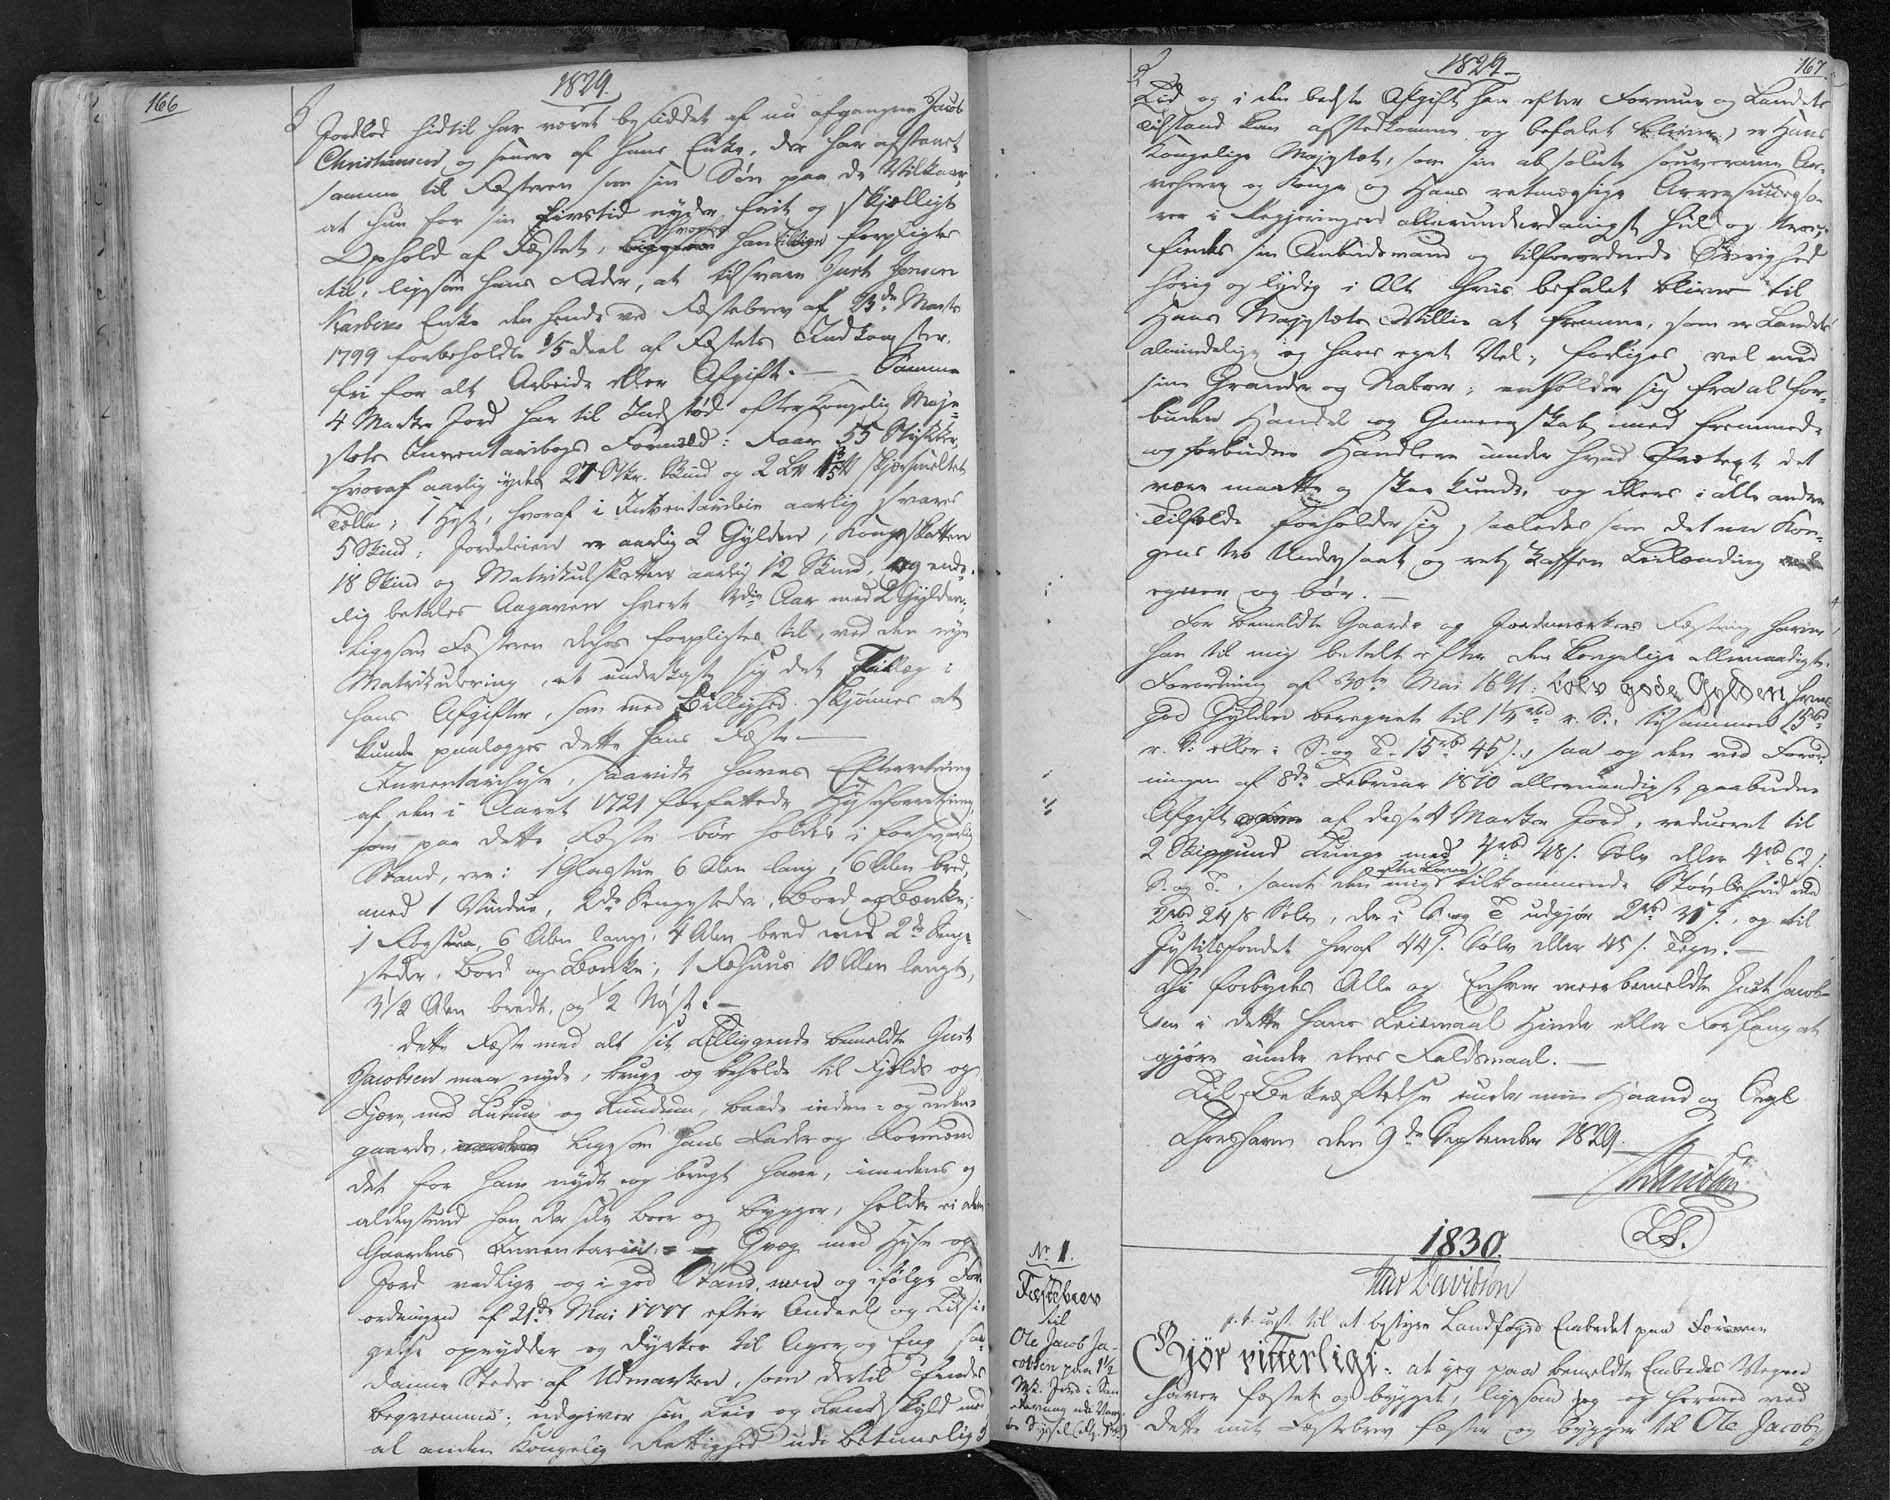 166
1829.
Jordlod hidtil har været besiddet af nu afgangne Jacob
Christiansen, og senere af hans Enke, der har afstaaet
samme til Fæsteren som sin Søn paa de Vilkaar,
at hun for sin Livstid nyder frit og skjelligt
Ophold af Fæstet, hvorhos han tillige forpligtes
til, ligesom hans Fader, at tilsvare Just Jensen
Enke den hende ved Fæstebrev af 13de Marts
1799 forbeholdte 1/5 deel af Fæstets Indkomster,
fri for alt Arbeide eller Afgift. — Samme
4 Marker Jord har til Indstød efter Kongelig Maje-
stets Inventariebogs Formeld: Faar 55 Stykker,
hvoraf aarlig ydes 27 Stkr. Skind og 2 skjærsmeltet
Tælle; 1 Hest, hvoraf i Inventarieleie aarlig svares
5 Skind; Jordeleien er aarlig 2 Gylden, Kongsskatten
18 Skind og Matrikulskatten aarlig 12 Skind, og ende-
lig betales Aagaven hvert 3die Aar med 2 Gylden;
Ligesom Fæsteren dehos forpligtes til, ved den nye
Matrikulering, at underkaste sig det Tillæg i
hans Afgifter, som med Billighed skjønnes at
kunde paalægges dette hans Fæste. —
Inventariehuse, saavidt haves Efterretning
af den i Aaret 1721 forfattede Huusforretning,
som paa dette Fæste bør holdes i forsvarlig
Stand, ere: 1 Glasstue 6 Alen lang, 6 Alen bred,
med 1 Vindue, 2de Sengesteder, Bord og Bænke;
1 Røgstue, 6 Alen lang, 4 Alen bred med 2de Senge-
steder, Bord og Bænke; 1 Fæhuus 10 Alen langt,
3 1/2 Alen bredt, og 1/2 Nøst. —
Dette Fæste med alt sit Tilliggende bemeldte Just
Jacobsen maa nyde, bruge og beholde til Fjelds og
Fjære, med Luttum og Lundum, baade inden- og uden-
gaards, ligesom hans Fader og Formænd
det for ham nydt og brugt have, imedens og
aldenstund han der selv boer og bygger, holder ei alene
Gaardens Inventarie- Qvæg med Huse og
Jord vedlige og i god Stand, men og ifølge For-
ordningen af 21de Mai 1777 efter Andeel og Tilsi-
gelse oprydder og dyrker til Ager og Eng saa-
danne Steder af Udmarken, som dertil findes
beqvemme; udgiver sin Leie og Landskyld med
al anden Kongelig Rettighed udi betimelig
167
1829.
Tid og i den bedste Afgift han efter Formue og Landets
Tilstand kan afstedkomme og befalet bliver; er Hans
Kongelige Majestæt, som sin absolute souveraine Ar-
veherre og Konge og Hans retmæssige Arvesuccesso-
rer i Regjeringen allerunderdanigst huld og troe;
findes sin Ambedsmand og tilforordnede Øvrighed
hørig og lydig i Alt hvis befalet bliver til
Hans Majestæts Villie at fremme, som er Landets
almindelige og hans eget Vel; forliges vel med
sine Grander og Naboer; entholder sig fra al for-
buden Handel og Gemeenskab med fremmede
og forbudne Handlere under hvad Prætext det
være maatte og skee kunde, og ellers i alle andre
Tilfælde forholder sig saaledes som det en Kon-
gens tro Undersaat og retskaffen Leilænding
egner og bør. —
For bemeldte Gaards og Jordemarkers Fæstning haver
han til mig betalt efter den Kongelige allernaadigste
Forordning af 30te Mai 1691: tolv gode Gylden hver
god Gylden beregnet til 1 1/4 rbd r. S., tilsammen 15 rbd
r. S. eller i S. og T. 15 rbd 45 s., saa og den ved Forord-
ningen af 8de Februar 1810 allernaadigst paabudne
Afgift af disse 4 Marker Jord, reduceret til
2 Skippund Tunge med 4 rbd 48 s. Sølv eller 4 rbd 62 s.
S. og T., samt den mig tilkommende ved
2 rbd 24 s Sølv, der i S. og T. udgjør 2 rbd 31 s., og til
Justitsfondet heraf 44 s. Sølv eller 45 s. Tegn. —
Thi forbydes Alle og Enhver meerbemeldte Just Jacob-
sen i dette hans Leiemaal Hinder eller Forfang at
gjøre under deres Faldsmaal. —
Til Bekræftelse under min Haand og Segl
Thorshavn den 9de September 1829.
Davidson
(L.S.)
1830.
No 1.
Fæstebrev
til
Ole Jacob Ja-
cobsen paa 1 1/2
Mk. Jord i San-
udi Vaa-
Syssel
Davidson
p. t. const. til at bestyre Landfoged Embedet paa Færøerne
Gjør vitterligt: at jeg paa bemeldte Embeds Vegne
haver fæstet og bygget, ligesom jeg og hermed ved
dette mit Fæstebrev fæster og bygger til Ole Jacob